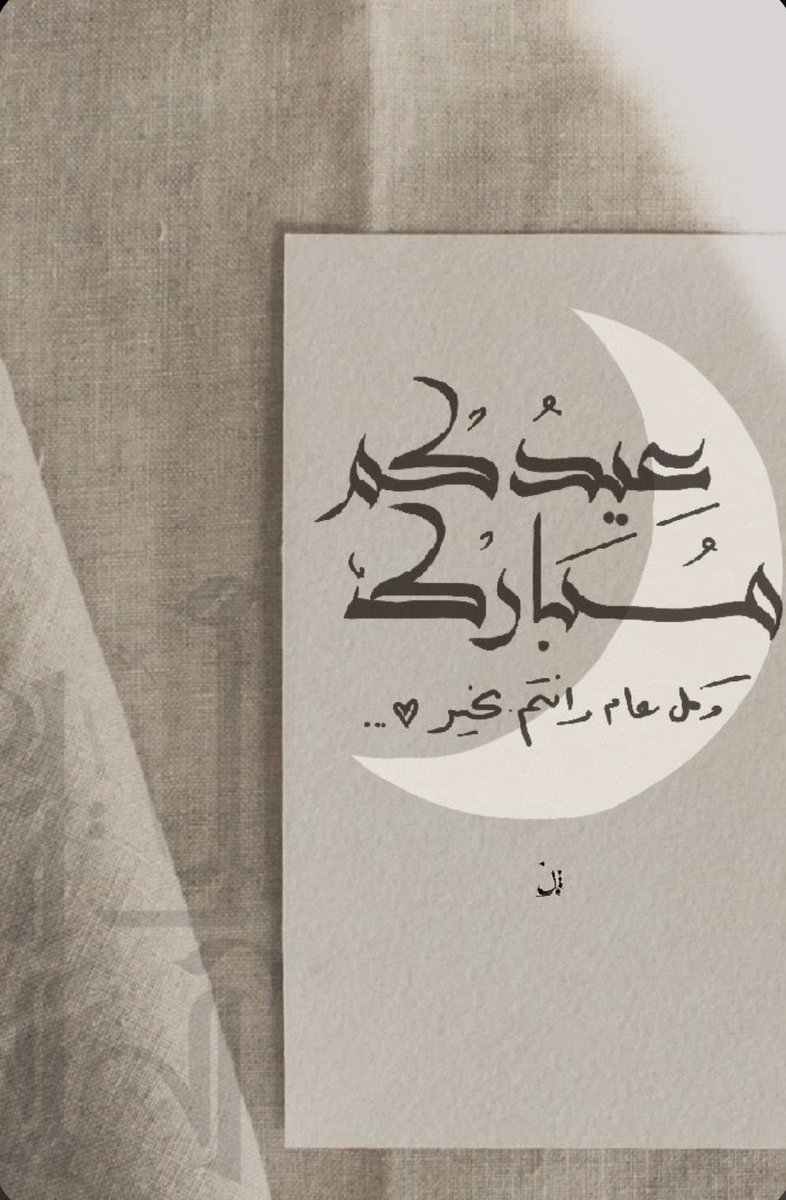 عِيدُكُم
مُبَارَكْ
وكل عام وانتم بخير ♡...